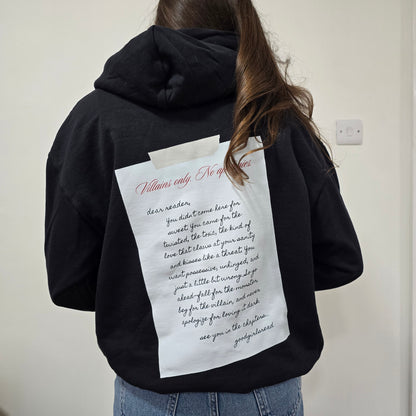 Villains only. No apologies
dear reader,
you didn't come here for
sweet. You came for the
twisted, the toxic, the kind of
love that claws at your sanity
and kisses like a threat. You
want possessive, unhinged, and
just a little bit wrong. So go
ahead-fall for the monster,
beg for the villain, and never
apologize for loving it dark.
see you in the chapters,
goodgirlsread